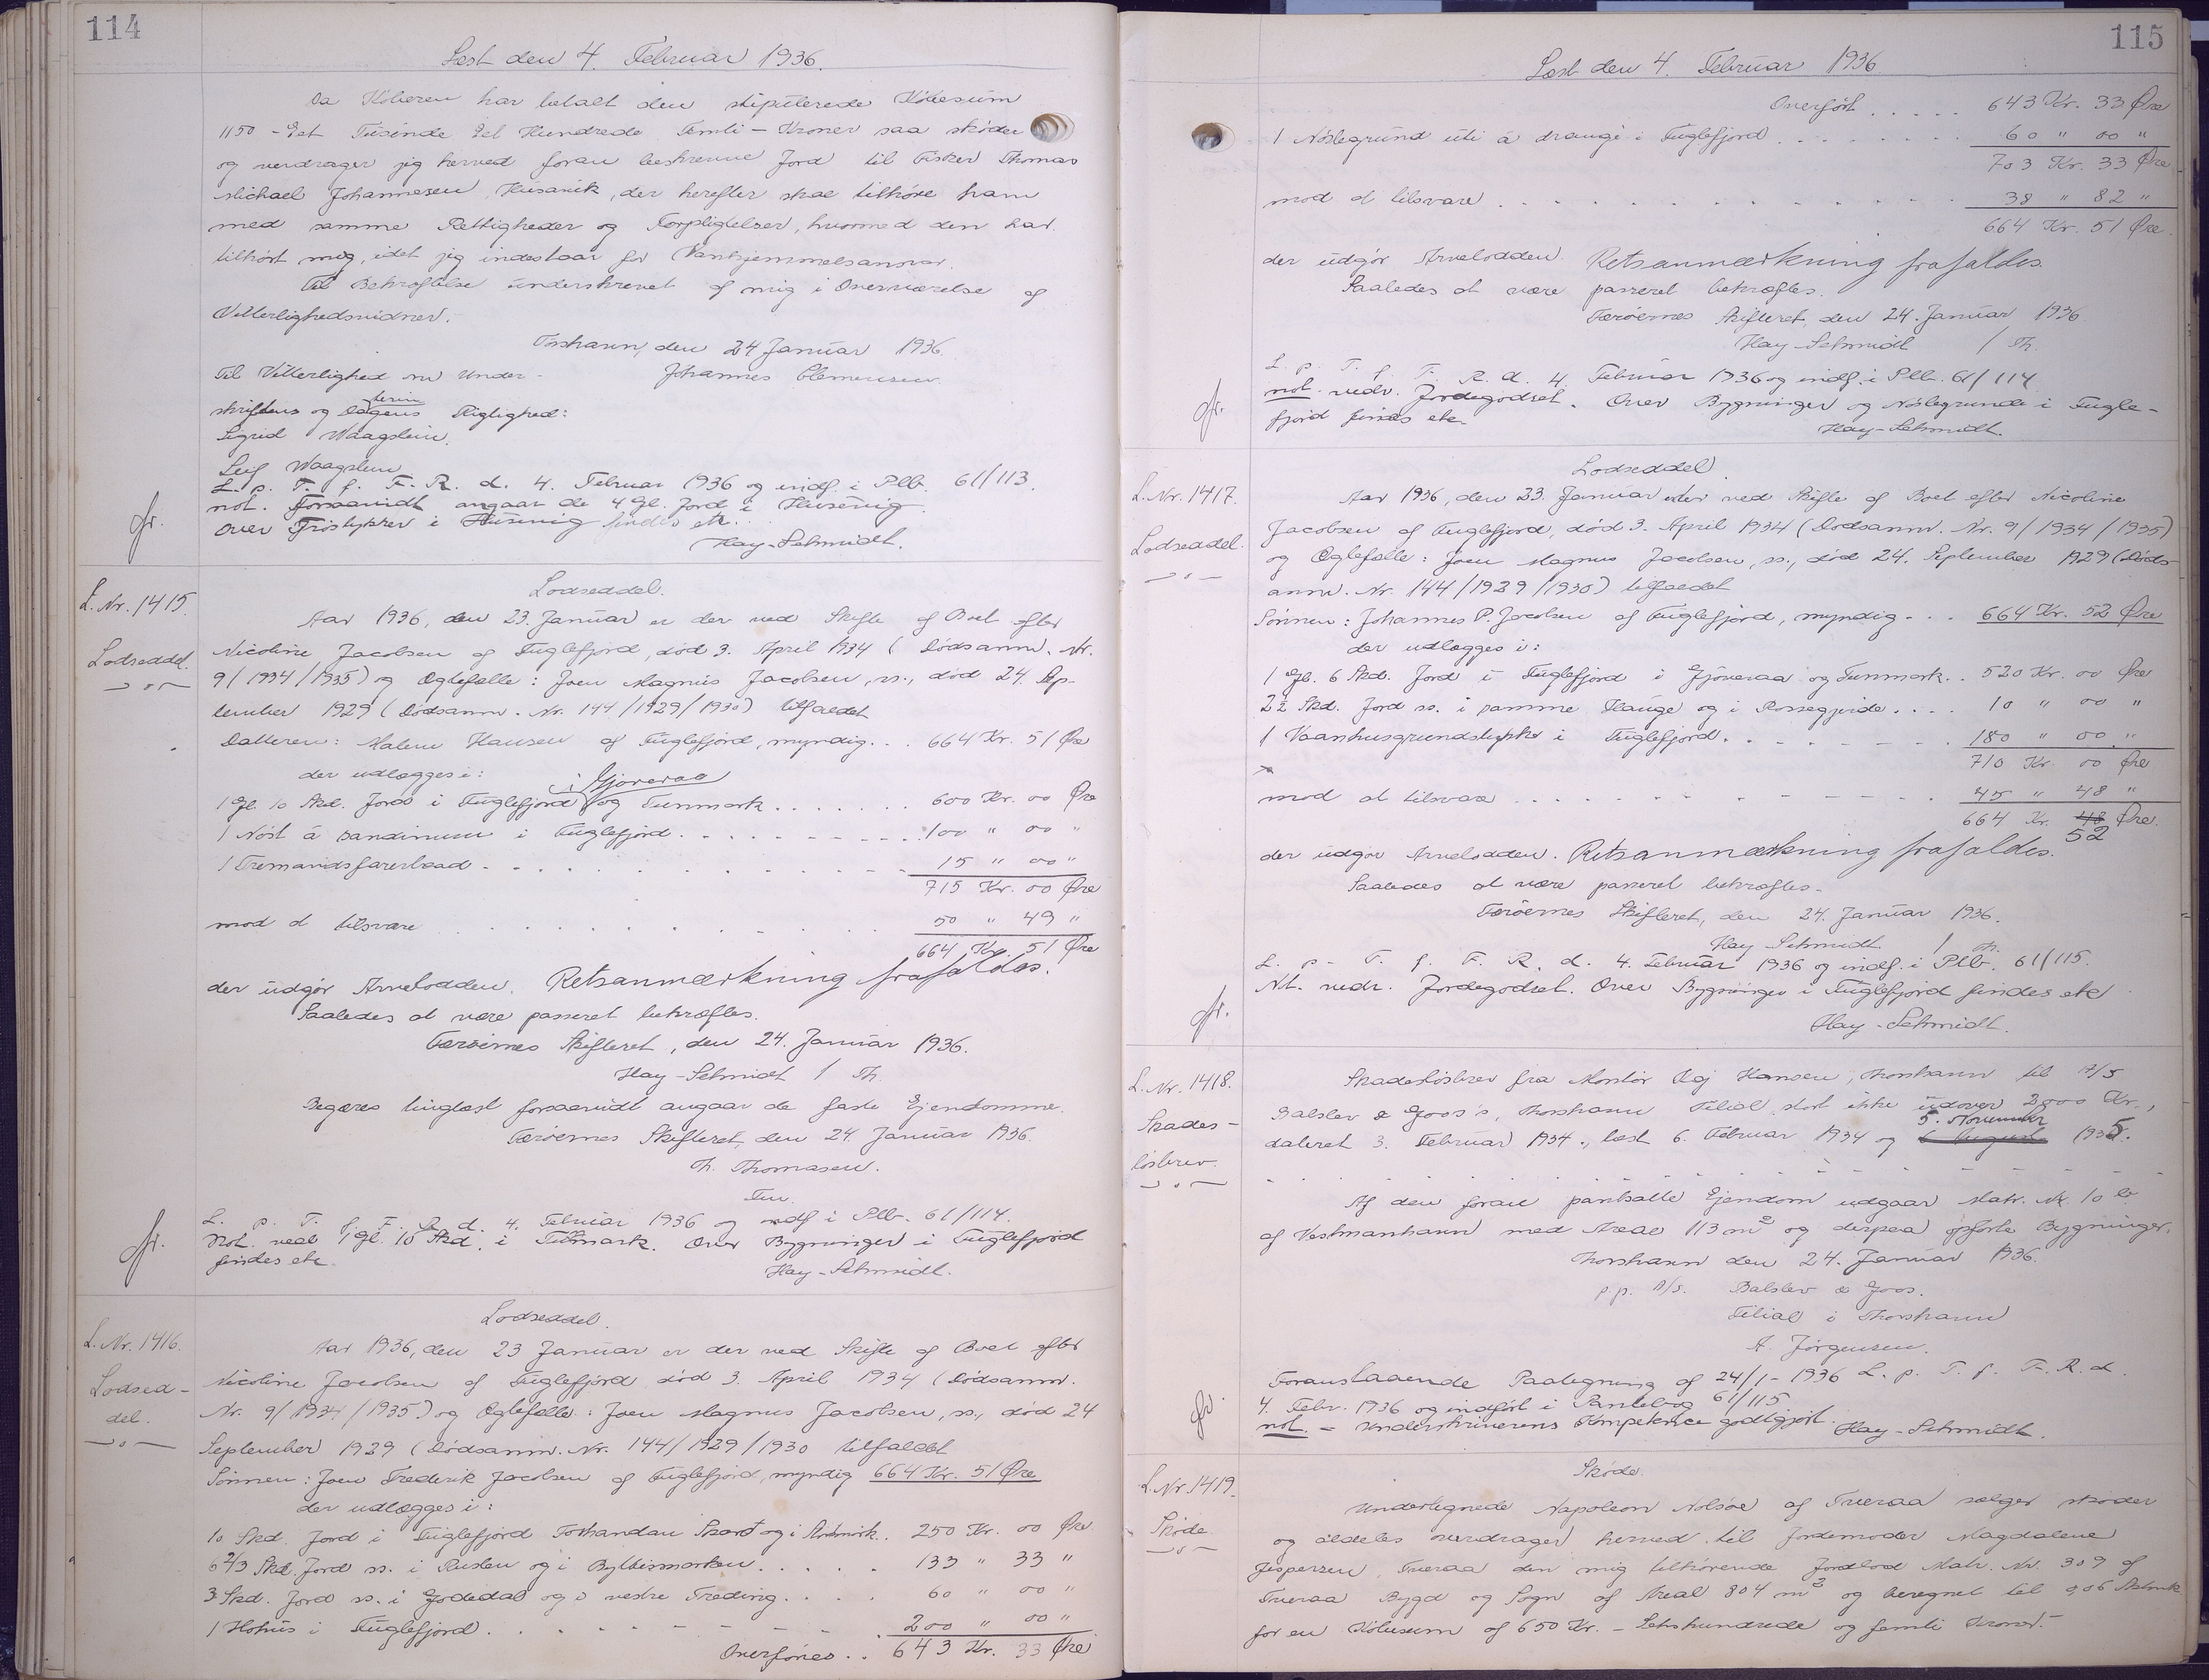 114
Læst den 4. Februar 1936.
Da Køberen har betalt den stipulerede Købesum
1150 - Eet Tusinde Eet Hundrede Femti - Kroner saa skøder
og overdrager jeg herved foran beskrevne Jord til Fisker Thomas
Michael Johannesen, Húsavik, der herefter skal tilhøre ham
med samme Rettigheder og Forpligtelser, hvormed den har
tilhørt mig, idet jeg indestaar for Vanhjemmelsansvar.
Til Bekræftelse underskrevet af mig i Overværelse af
Vitterlighedsvidner.
Torshavn, den 24 Januar 1936.
Til Vitterlighed om Under- Johannes Clemensen.
skriftens og Dagens Rigtighed:
Sigrid Waagstein.
Leif Waagstein
L. p. T. f. F. R. d. 4. Februar 1936 og indf. i Plb. 61/113.
not. forsaavidt angaar de 4 Gl. Jord i Húsevig.
Over Fristykker i Husevig findes etc.
Hay-Schmidt.
L. Nr. 1415.
Lodseddel.
Lodseddel.
Aar 1936, den 23. Januar er der ved Skifte af Boet efter
Nicoline Jacobsen af Fuglefjord, død 3. April 1934 ( Dødsanm. Nr.
9/1934/1935) og Ægtefælle: Joen Magnus Jacobsen, ss., død 24. Sep-
tember 1929 (Dødsanm. Nr. 144/1929/1930) tilfaldet
Datteren: Malene Hansen af Fuglefjord, myndig. . . 664 Kr. 51 Øre
der udlægges i:
i Gjøveraa
1 Gl. 10 Skd. Jord i Fuglefjord og Tunmark . . . . . . . 600 Kr. 00 Øre
1 Nóst á sandinum i Fuglefjord . . . . . . . . . . 100 " 00 "
1 Tremandsfarerbaad . . . . . . . . . . . . . 15 " 00 "
715 Kr. 00 Øre
mod at tilsvare . . . . . . . . . . 50 " 49 "
664 Kr. 51 Øre
der udgør Arvelodden. Retsanmærkning frafaldes.
Saaledes at være passeret bekræftes.
Færøernes Skifteret, den 24. Januar 1936.
Hay-Schmidt / Th.
Begæres tinglæst forsaavidt angaar de faste Ejendomme.
Færøernes Skifteret, den 24. Januar 1936.
Th. Thomasen.
Fm.
L. p. T. f. F. R. d. 4. Februar 1936 og indf i Plb. 61/114.
Not. vedr 1 Gl. 10 Skd. i Tunmark. Over Bygninger i Fuglefjord
findes etc
Hay-Schmidt.
L. Nr. 1416.
Lodsed-
del.
Lodseddel.
Aar 1936, den 23 Januar er der ved Skifte af Boet efter
Nicoline Jacobsen af Fuglefjord død 3. April 1934 (Dødsanm.
Nr. 9/1934/1935) og Ægtefælle: Joen Magnus Jacobsen, ss., død 24
September 1929 (Dødsanm. Nr. 144/1929/1930 tilfaldet
Sønnen: Joen Frederik Jacobsen af Fuglefjord, myndig 664 Kr. 51 Øre
der udlægges i:
10 Skd. Jord i Fuglefjord Forhandan Skard og i . . 250 Kr. 00 Øre
6 2/3 Skd. Jord ss. i Rusten og i Byltismørken . . . . . 133 " 33 "
3 Skd. Jord ss. i Godedal og i vestre Treding. . . . 60 " 00 "
1 Hohús i Fuglefjord . . . . . . . . . 200 " 00 "
Overføres . . 643 Kr. 33 Øre
115
Læst den 4. Februar 1936
Overført . . . . . 643 Kr. 33 Øre
1 Nóstegrund úti á drangi i Fuglefjord . . . . . . . 60 " 00 "
703 Kr. 33 Øre
mod at tilsvare . . . . . . . . . . . . . . 38 " 82 "
664 Kr. 51 Øre.
der udgør Arvelodden. Retsanmærkning frafaldes.
Saaledes at være passeret bekræftes.
Færøernes Skifteret, den 24. Januar 1936
Hay-Schmidt / Th.
L. p. T. f. F. R. d. 4. Februar 1936 og indf. i Plb. 61/114
not. vedr. Jordegodset. Over Bygninger og Nóstegrunde i Fugle-
fjord findes etc.
Hay-Schmidt.
L. Nr. 1417.
Lodseddel.
Lodseddel.
Aar 1936, den 23. Januar er der ved Skifte af Boet efter Nicoline
Jacobsen af Fuglefjord, død 3. April 1934 (Dødsanm. Nr. 9/1934/1935)
og Ægtefælle: Joen Magnus Jacobsen, ss., død 24. September 1929 (Døds-
anm. Nr. 144/1929/1930) tilfaldet
Sønnen: Johannes P. Jacobsen af Fuglefjord, myndig . . . 664 Kr. 52 Øre
der udlægges i:
1 Gl. 6 Skd. Jord i Fuglefjord i Gjøveraa og Tunmark. . 520 Kr. 00 Øre
2½ Skd. Jord ss. i samme Hauge og i Rossegjerde. . . . 10 " 00 "
1 Vaanhusgrundstykke i Fuglefjord. . . . . . . . . 180 " 00 "
710 Kr. 00 Øre
mod at tilsvare . . . . . . . . . . . . . . 45 " 48 "
664 Kr. 48 Øre.
52
der udgør Arvelodden. Retsanmærkning frafaldes.
Saaledes at være passeret bekræftes.
Færøernes Skifteret, den 24. Januar 1936.
Hay Schmidt. / Th.
L. p. T. f. F. R. d. 4. Februar 1936 og indf. i Plb. 61/115.
Not. vedr. Jordegodset. Over Bygninger i Fuglefjord findes etc
Hay-Schmidt.
L. Nr. 1418.
Skades-
løsbrev.
Skadesløsbrev fra Montør Aej Hansen, Thorshavn til A/S
Balslev & Goos's, Thorshavn Filial stort ikke udover 2000 Kr.,
5. November
dateret 3. Februar 1934., læst 6. Februar 1934 og 6 August 1935.
Af den foran pantsatte Ejendom udgaar Matr. Nr. 10 b
af Vestmanhavn med Areal 113 m² og derpaa opførte Bygninger.
Thorshavn den 24. Januar 1936.
p.p. A/S. Balslev & Goos.
Filial i Thorshavn
A. Jørgensen.
Foranstaaende Paategning af 24/1-1936 L. p. T. f. F. R. d.
4. Febr. 1936 og indført i Pantebog 61/115
not. - Underskriverens Kompetence godtgjort. Hay-Schmidt.
L. Nr. 1419.
Skøde
Skøde.
Undertegnede Napoleon Nolsøe af Tveraa sælger skøder
og aldeles overdrager herved til Jordemoder Magdalene
Jespersen, Tveraa den mig tilhørende Jordlod Matr. Nr. 309 af
Tveraa Bygd og Sogn af Areal 804 m² og beregnet til 0,06 Skd.
for en Købesum af 650 Kr. - Sekshundrede og femti Kroner. -